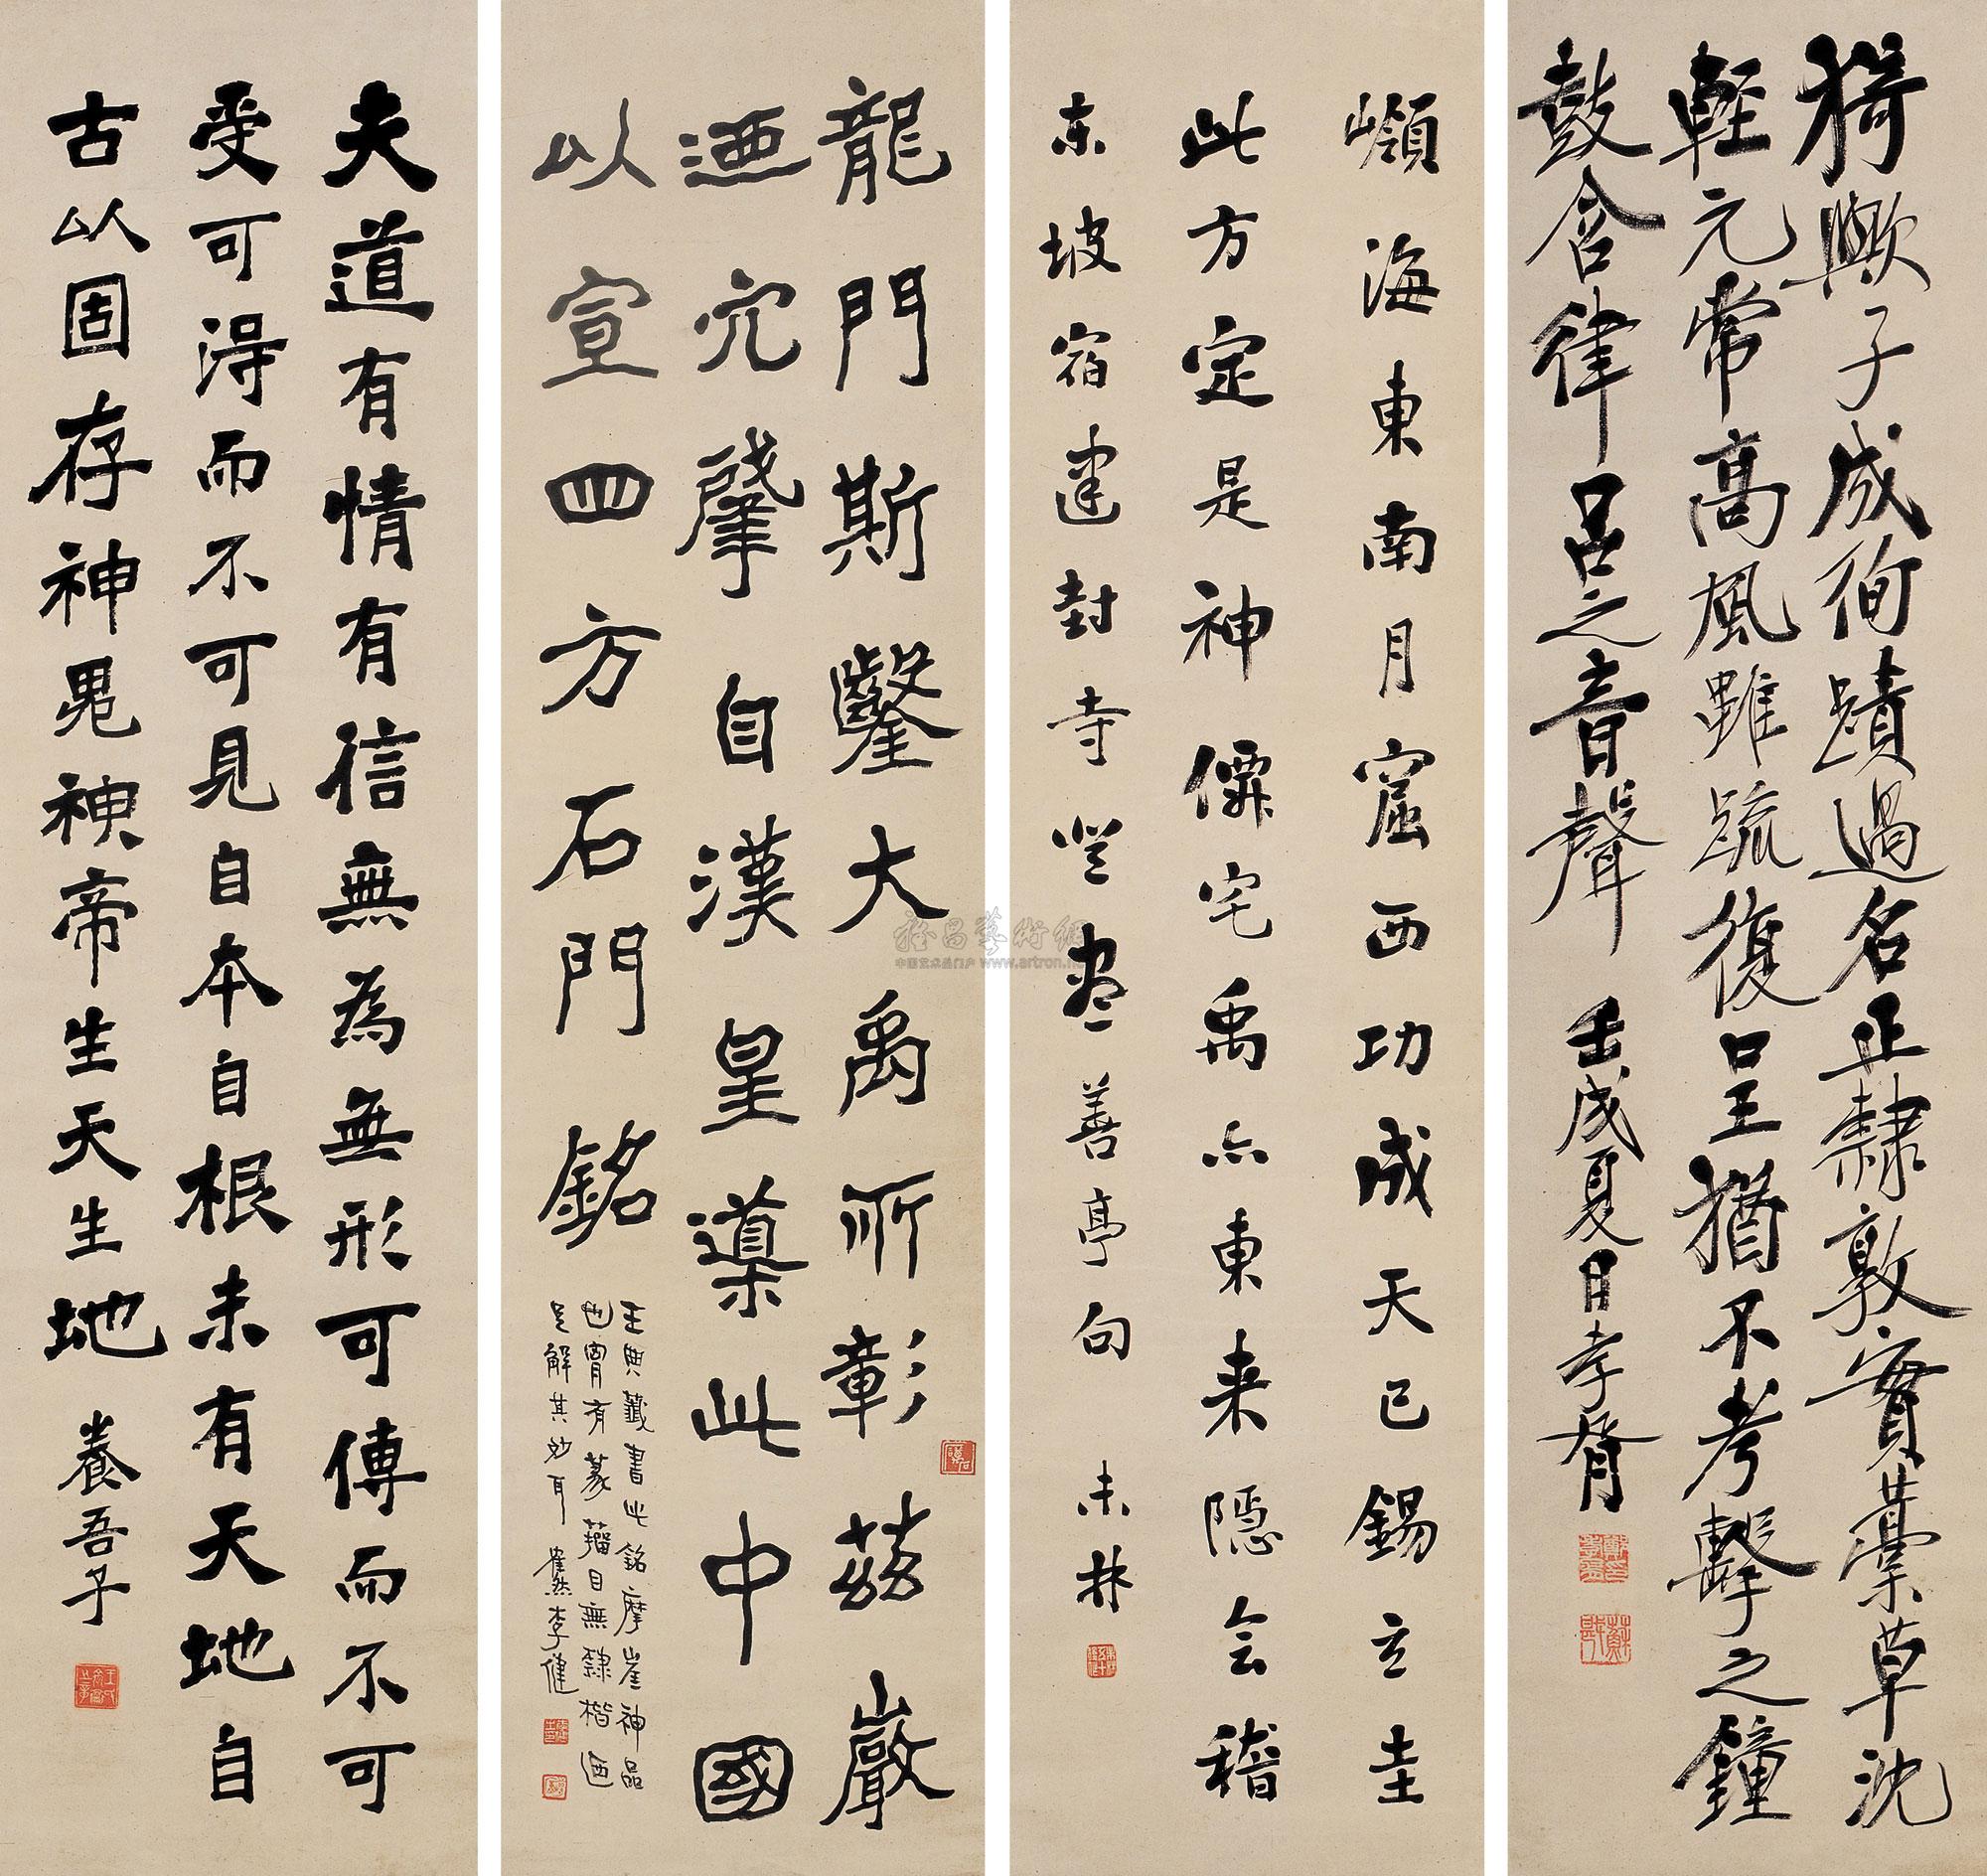 猗歟子成徇蹟過名正隸敦實藁草沈
輕元常高風雖疏復呈猶不考擊之鐘
鼓含律呂之音聲 壬戌夏日孝胥
嶺海東南月窟西功成天已錫玄圭
此方定是神僊宅禹亦東来隱会稽
东坡宿建封寺登盡善亭句
龍門斯鑿大禹所彰茲巖
迺穴肈自漢皇導此中國
以宣四方石門銘
王典籤書此銘摩崖神品
也胷有篆籀目無隸楷迺
足解其妙耳 隺然李健
夫道有情有信無為無形可傳而不可
受可得而不可見自本自根未有天地自
古以固存神鬼神帝生天生地 養吾子
雅昌藝術網
中国艺术品门户 www.artron.ne